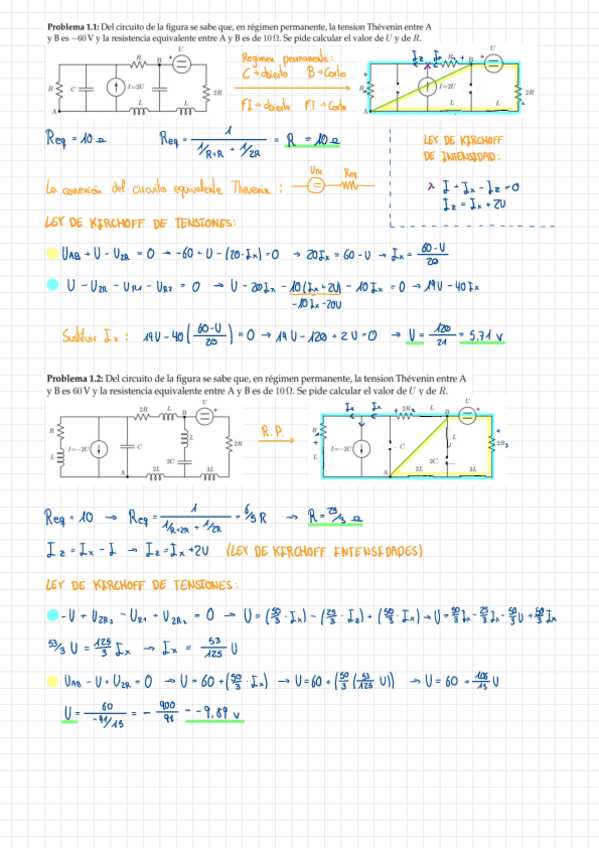 Problema 1.1: Del circuito de la figura se sabe que, en régimen permanente, la tension Thévenin entre A
y B es −60 V y la resistencia equivalente entre A y B es de 10 Ω. Se pide calcular el valor de U y de R.
Regimen permanente:
C → abierto B → Corto
FI → abierto FT → Corto
R
B
U
R
C
I=2U
2R
A
L
L
Iz Ix R₁
B
U
I=2U
A
L
L
2R
Req = 10 Ω Req = 1 / (1/R+R + 1/2R) = R = 10 Ω
LEY DE KIRCHOFF
DE INTENSIDAD:
I + Ix - Iz = 0
Iz = Ix + 2U
La conexión del circuito equivalente Thevenin : Uth Req
LEY DE KIRCHOFF DE TENSIONES:
UAB + U - U2R = 0 → -60 + U - (20·Ix) = 0 → 20Ix = 60 - U → Ix = 60-U / 20
U - U2R - UR1 - UR2 = 0 → U - 20Ix - 10(Ix+2U) - 10Ix = 0 → 19U - 40Ix
-10Ix -20U
Sustituir Ix : 19U - 40 (60-U / 20) = 0 → 19U - 120 + 2U = 0 → U = 120 / 21 = 5,71 V
Problema 1.2: Del circuito de la figura se sabe que, en régimen permanente, la tension Thévenin entre A
y B es 60 V y la resistencia equivalente entre A y B es de 10 Ω. Se pide calcular el valor de U y de R.
2R
L
B
U
R
L
I=−2U
C
L
2C
2R
A
2L
3L
R.P.
Iz Ix
2R₂
L
B
U
R
L
I=−2U
C
L
2C
2R₃
A
2L
3L
Req = 10 → Req = 1 / (1/R+2R + 1/2R) = 6/5 R → R = 25/3 Ω
Iz = Ix - I → Iz = Ix + 2U (LEY DE KIRCHOFF INTENSIDADES)
LEY DE KIRCHOFF DE TENSIONES:
-U + U2R3 - UR1 + U2R2 = 0 → U = (50/3 · Ix) - (25/3 · Iz) + (50/3 · Ix) → U = 50/3 Ix - 25/3 Ix - 50/3 U + 50/3 Ix
53/3 U = 125/3 Ix → Ix = 53/125 U
UAB - U + U2R = 0 → U = 60 + (50/3 · Ix) → U = 60 + (50/3 (53/125 U)) → U = 60 + 106/15 U
U = 60 / -91/15 = - 900/91 = -9,89 V